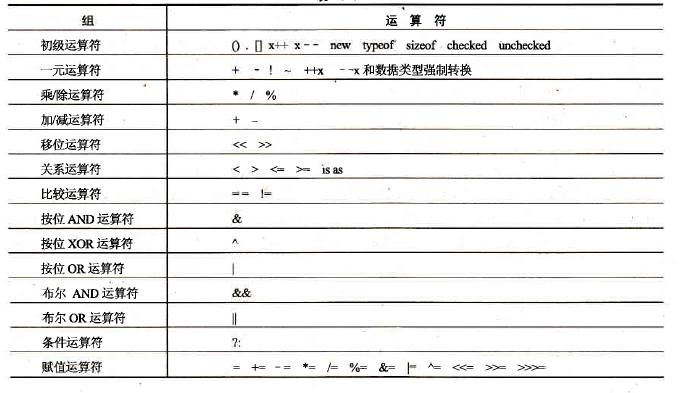 组 运 算 符
初级运算符 () . [] x++ x-- new typeof sizeof checked unchecked
一元运算符 + - ! ~ ++x --x 和数据类型强制转换
乘/除运算符 * / %
加/减运算符 + -
移位运算符 << >>
关系运算符 < > <= >= is as
比较运算符 == !=
按位 AND 运算符 &
按位 XOR 运算符 ^
按位 OR 运算符 |
布尔 AND 运算符 &&
布尔 OR 运算符 ||
条件运算符 ?:
赋值运算符 = += -= *= /= %= &= |= ^= <<= >>= >>>=